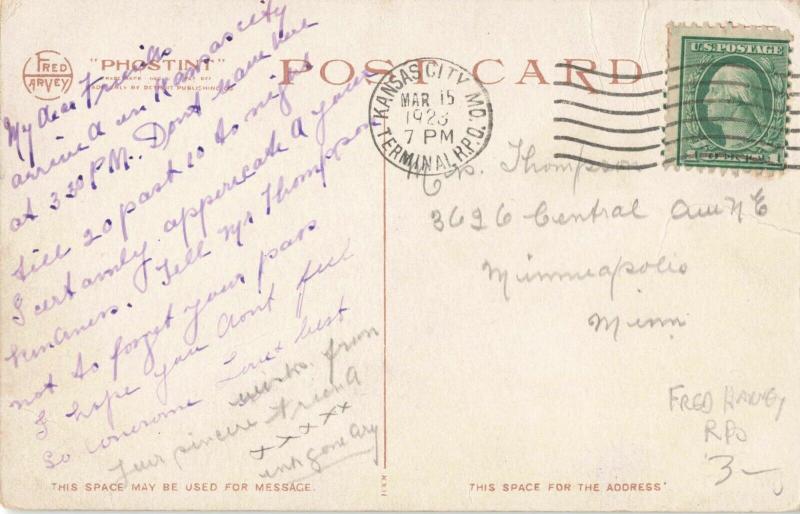 FRED HARVEY
"PHOSTINT"
POST CARD
My dear Friends
arrived in Kansas city
at 3 30 P.M. Dont leave here
till 20 past 10 to night
I certamly appericate a your
kindness. Tell Mr Thompson
not to forget your pass
I hope you dont feel
so lonesome Love & best
wishes from
your sincere friend
x x x x x
ink gone dry
THIS SPACE MAY BE USED FOR MESSAGE.
KANSAS CITY, MO.
MAR 15
1923
7 PM
TERMINAL R.P.O.
U.S. POSTAGE
Thompson
3626 Central Ave N E
Minneapolis
Minn
FRED HARVEY
RPO
3-
THIS SPACE FOR THE ADDRESS